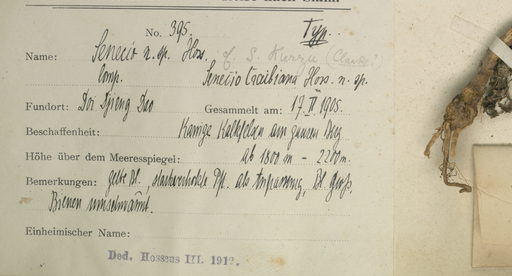 No. 395.
Typ.
Name: Senecio n. sp. Hoss. cf. S. Kurzii (Clarke)
Comp. Senecio Craibiana Hoss. n. sp.
Fundort: Doi Djieng Dao Gesammelt am: 17. II 1905.
Beschaffenheit: Kantige Kalkfelsen am ganzen Berg
Höhe über dem Meeresspiegel: ab 1800 m - 2200 m.
Bemerkungen: gelbe Bl., starkverholzte Pfl. als Anpassung, Bl. groß,
Bienen umschwärmt.
Einheimischer Name:
Ded. Hosseus III. 1912.